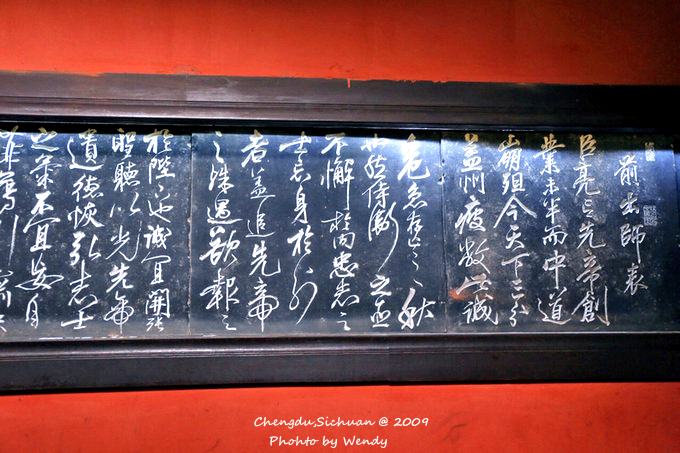 前出師表
臣亮言先帝創
業未半而中道
崩殂今天下三分
益州疲敝此誠
危急存亡之秋
也然侍衛之臣
不懈於內忠志之
士忘身於外
者蓋追先帝
之殊遇欲報之
於陛下也誠宜開張
聖聽以光先帝
遺德恢弘志士
之氣不宜妄自
菲薄引喻
Chengdu,Sichuan @ 2009
Phohto by Wendy